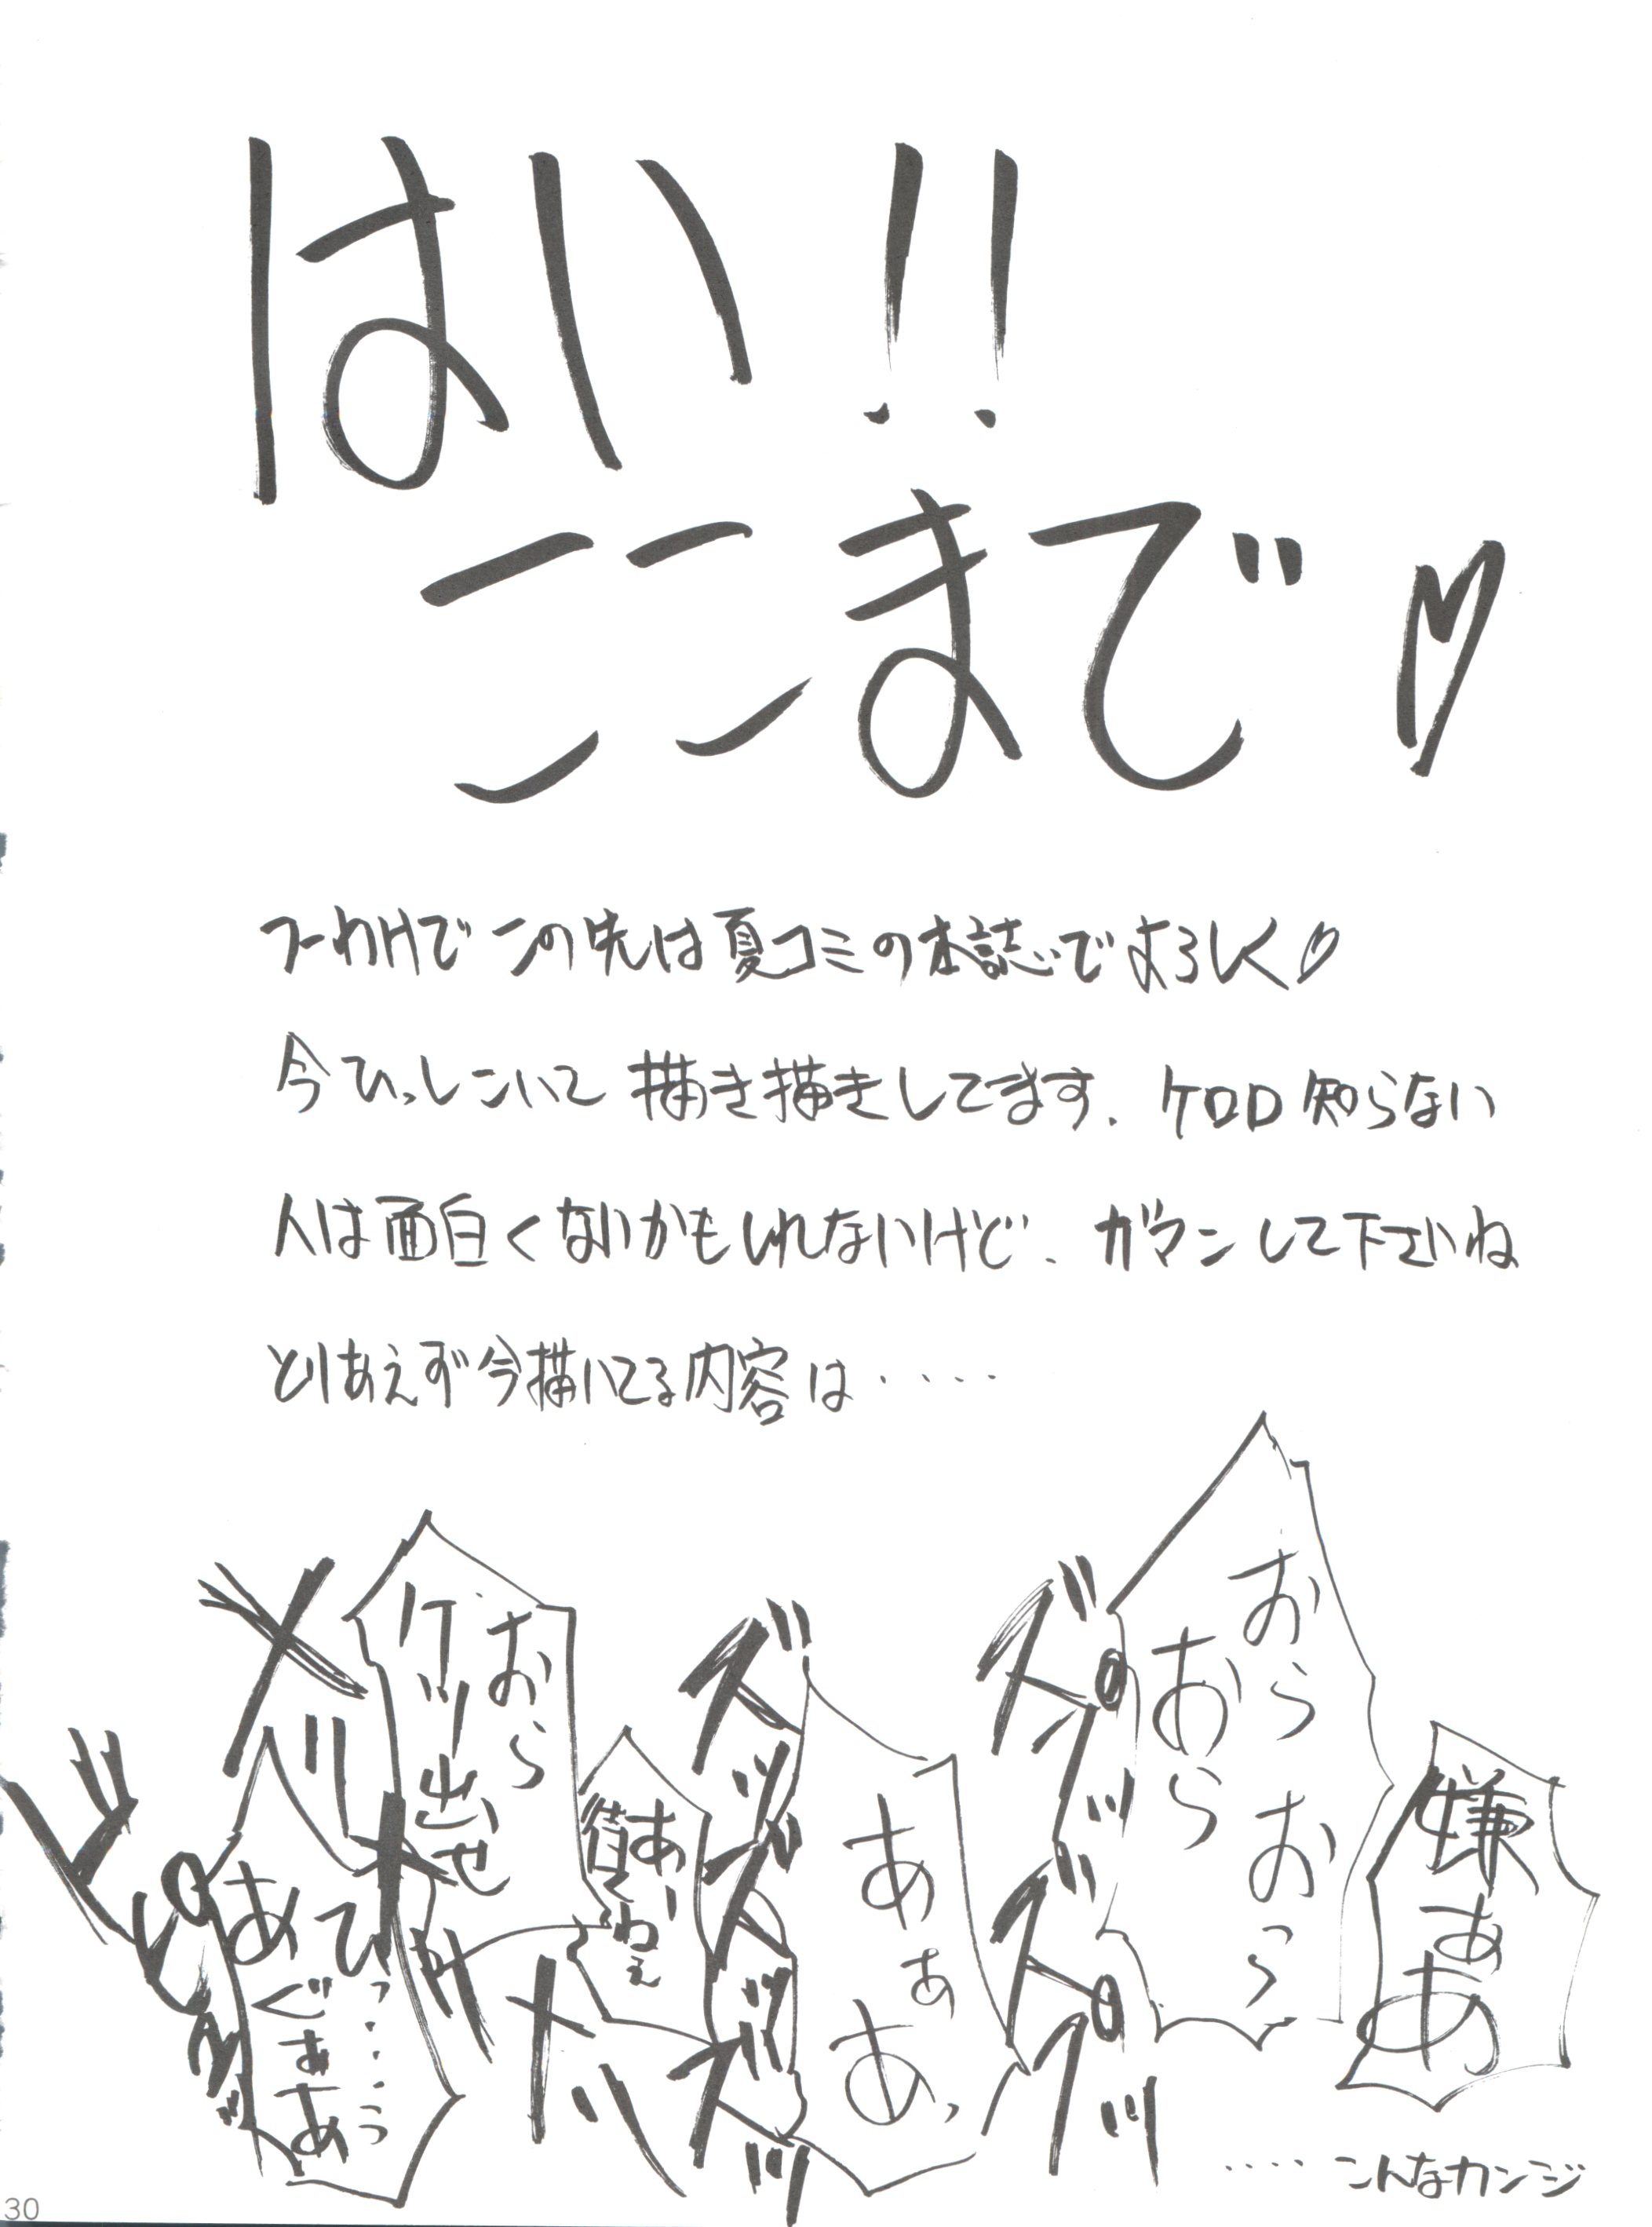 はい!!
ここまで♡
つーわけでこの先は夏コミの本誌でよろしく♡
今ひっしこいて描き描きしてます. ケロロ知らない
人は面白くないかもしれないけど、ガマンして下さいね
とりあえず今描いてる内容は・・・・・
嫌
ぁあ
おらおらっ
おら
ズグッ
ズグッ
あぁあっ
ズッ
ズッ
ズッ
あー
ねぇ
おら
ケツ出せ
メリ
メリ
ひっ・・・・っ
あぐぁあ
・・・・こんなカンジ
30